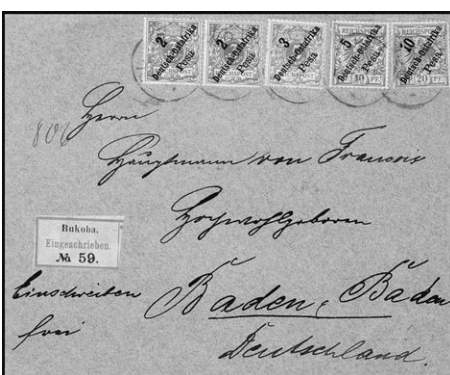 2 Deutsch-Ostafrika Pesa
2 Deutsch-Ostafrika Pesa
3 Deutsch-Ostafrika Pesa
5 Deutsch-Ostafrika Pesa
10 Deutsch-Ostafrika Pesa
REICHSPOST 10 PF.
REICHSPOST 20 PF.
Herrn
Hauptmann von Francois
Hochwohlgeboren
Bukoba.
Eingeschrieben.
№ 59.
Einschreiben
frei
Baden-Baden
Deutschland.